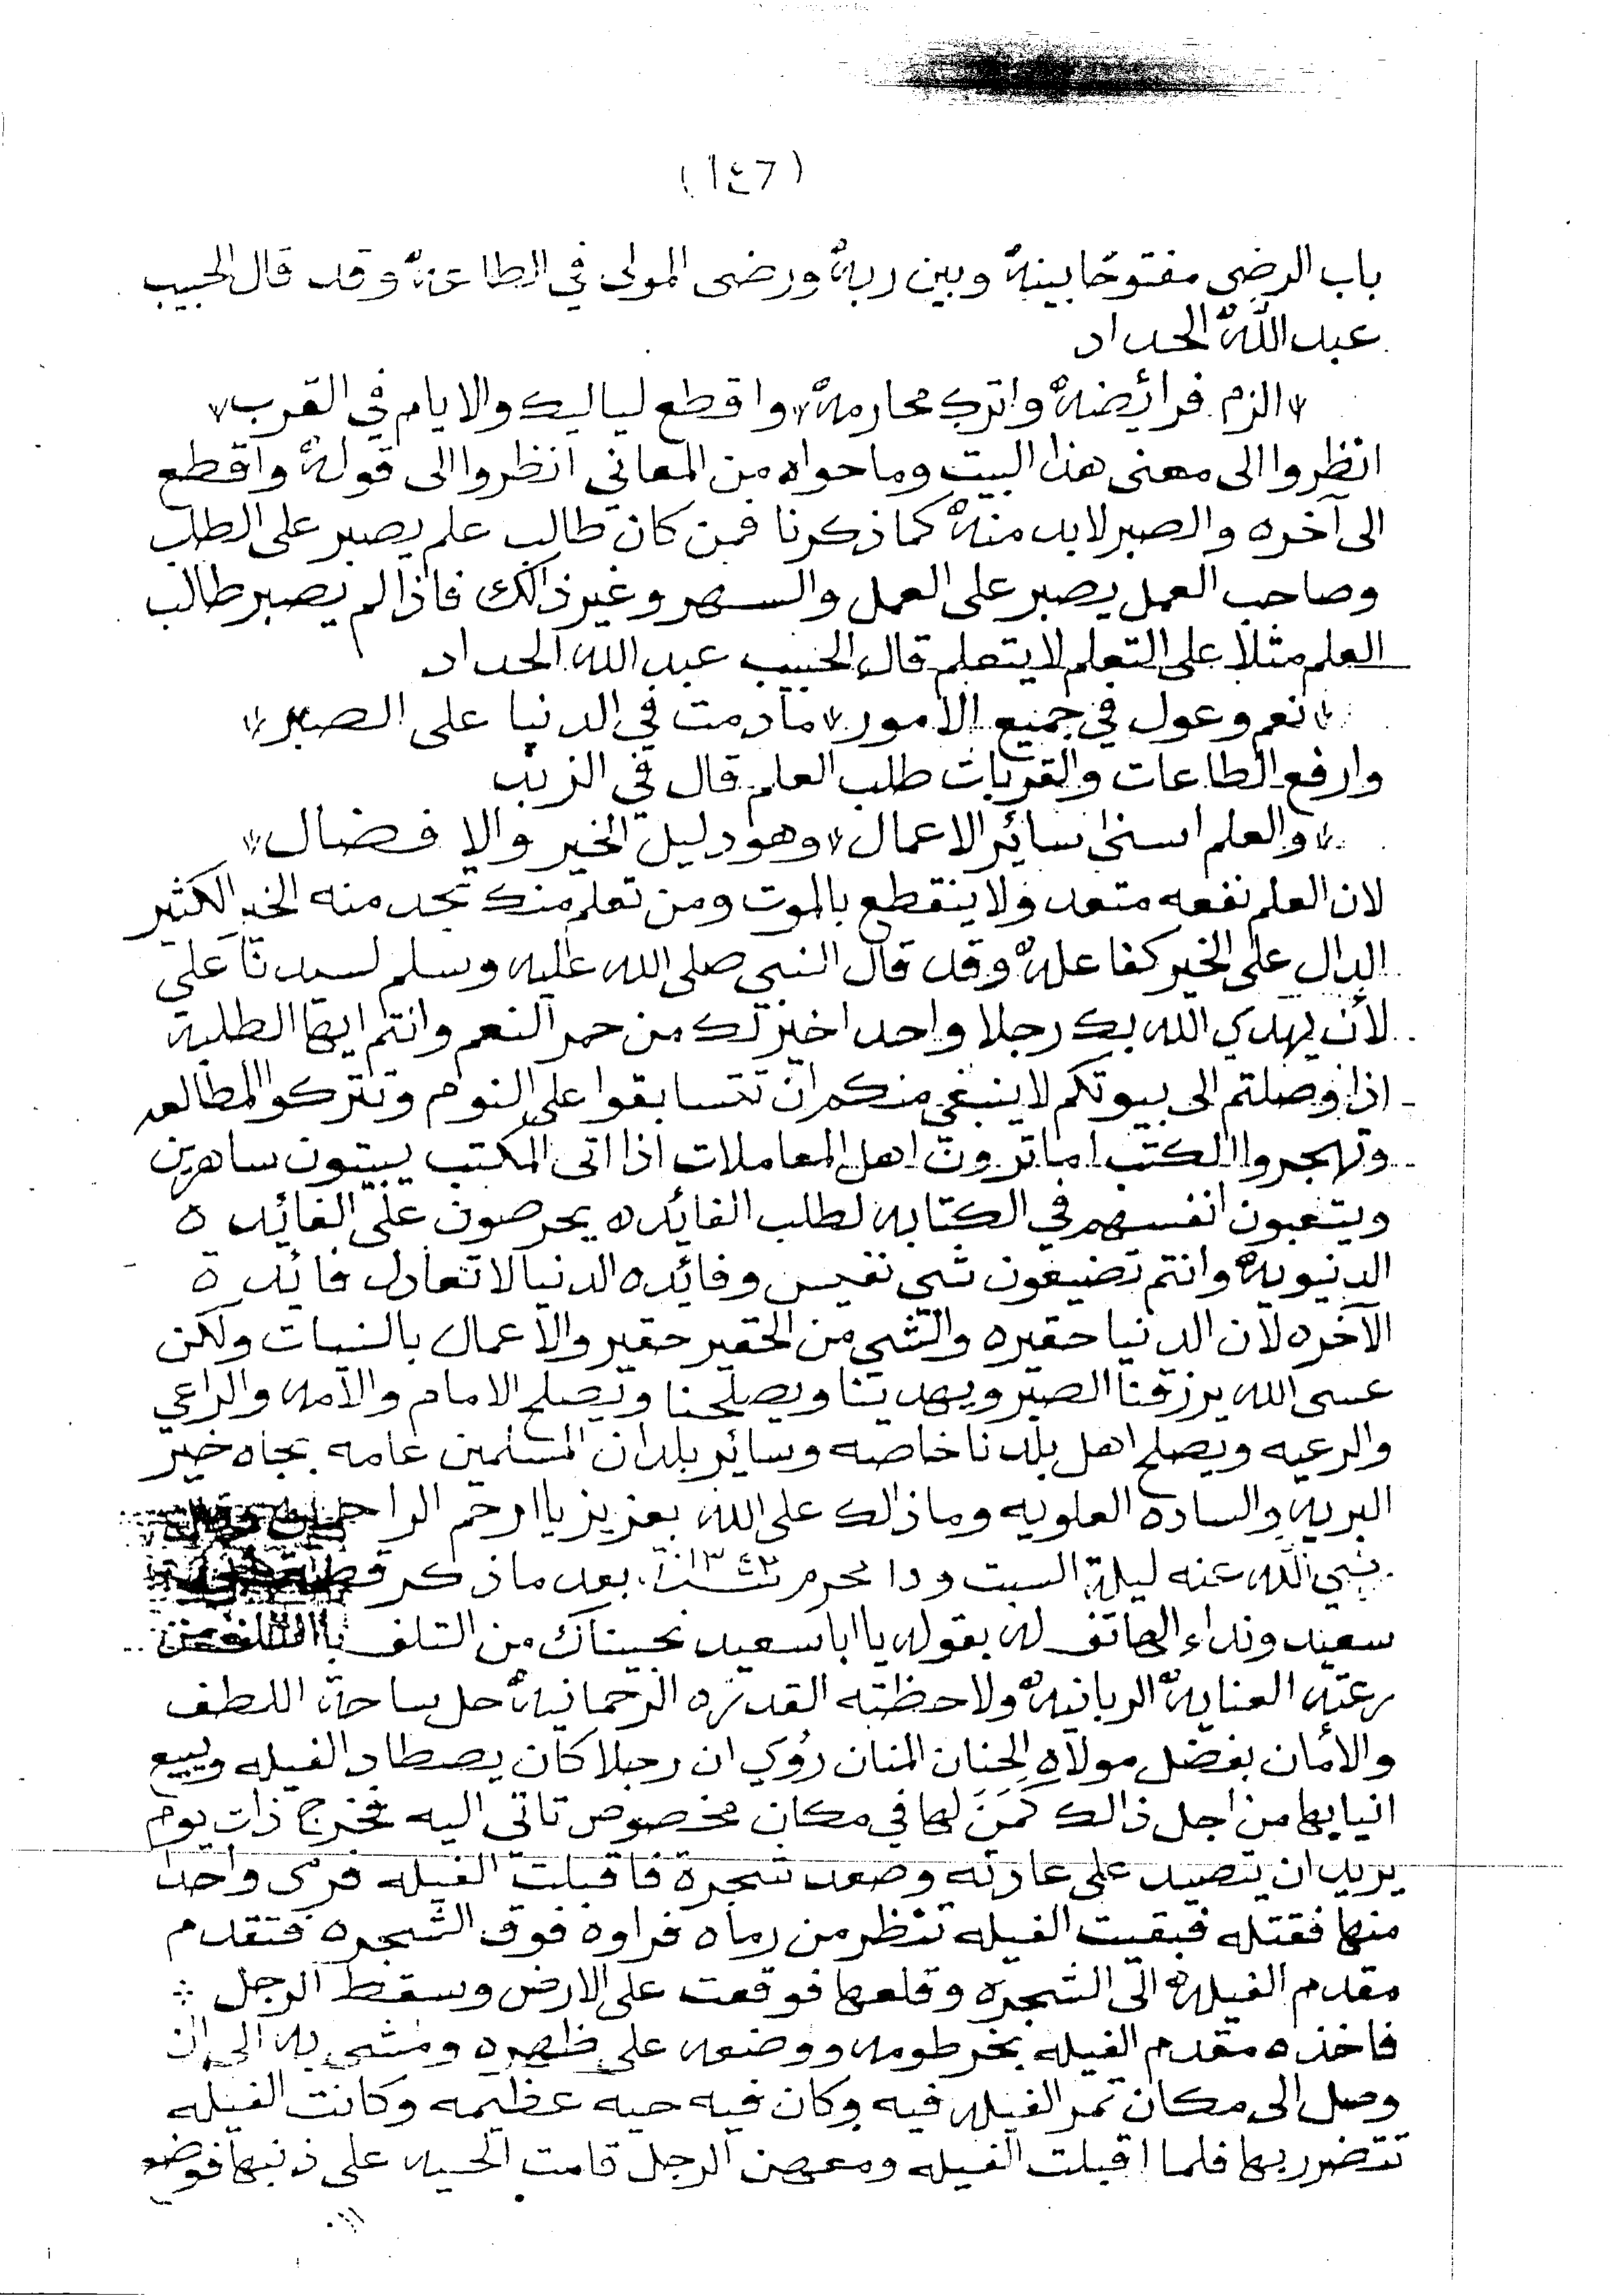 (١٤٦)
باب الرضى مفتوحا بينهُ وبين ربهُ ورضى المولى في الطاعهُ وقد قال الحبيب
عبد اللهُ الحداد
الزم فرائضهُ واترك محارمهُ واقطع لياليك والايام في القرب
انظروا الى معنى هذا البيت وما حواه من المعاني انظروا الى قولهُ واقطع
الى آخره والصبر لابد منهُ كما ذكرنا فمن كان طالب علم يصبر على الطلب
وصاحب العمل يصبر على العمل والسهر وغير ذالك فاذا لم يصبر طالب
العلم مثلا على التعلم لا يتعلم قال الحبيب عبد الله الحداد
نعم وعول في جميع الامور مادمت في الدنيا على الصبر
وارفع الطاعات والقربات طلب العلم قال في الزبد
والعلم اسنى سائر الاعمال وهو دليل الخير والافضال
لان العلم نفعه متعد ولا ينقطع بالموت ومن تعلم منك تجد منه الخير الكثير
الدال على الخير كفاعلهُ وقد قال النبي صلى الله عليه وسلم لسيدنا علي
لأن يهدي الله بك رجلا واحدا خير لك من حمر النعم وانتم ايها الطلبة
اذا وصلتم الى بيوتكم لا ينبغي منكم ان تتسابقوا على النوم وتتركوا المطالعه
وتهجروا الكتب اما ترون اهل المعاملات اذا اتى المكتب يبيتون ساهرين
ويتعبون انفسهم في الكتابه لطلب الفائده يحرصون على الفائده
الدنيويهُ وانتم تضيعون شي نفيس وفائده الدنيا لا تعادل فائدة
الآخره لان الدنيا حقيره والشي من الحقير حقير والاعمال بالنيات ولكن
عسى الله يرزقنا الصبر ويهدينا ويصلحنا ويصلح الامام والامه والراعي
والرعيه ويصلح اهل بلدنا خاصه وسائر بلدان المسلمين عامه بجاه خير
البريه والساده العلويه وما ذالك على الله بعزيز يا ارحم الراحمين وقال
رضي الله عنه ليلة السبت و١٥ محرم سنة ١٣٤٢ بعد ما ذكر قصة
سعيد ونداء الهاتف له بقوله يا ابا سعيد نجيناك من التلف بالتلف من
رعته العنايهُ الربانيهُ ولاحظته القدره الرحمانيهُ حل بساحة اللطف
والأمان بفضل مولاهِ الحنان المنان رُوي ان رجلا كان يصطاد الفيله ويبيع
انيابها من اجل ذالك كَمَنَ لها في مكان مخصوص تاتي اليه فخرج ذات يوم
يريد ان يتصيد على عادته وصعد شجرة فاقبلت الفيله فرمى واحدا
منها فقتله فبقيت الفيله تنظر من رماه فراوه فوق الشجره فتقدم
مقدم الفيلهُ الى الشجره وقلعها فوقعت على الارض وسقط الرجل
فاخذه مقدم الفيله بخرطومه ووضعه على ظهره ومشى به الى ان
وصل الى مكان تمر الفيله فيه وكان فيه حيه عظيمه وكانت الفيله
تتضرر بها فلما اقبلت الفيله ومعهن الرجل قامت الحيه على ذنبها فوضعو